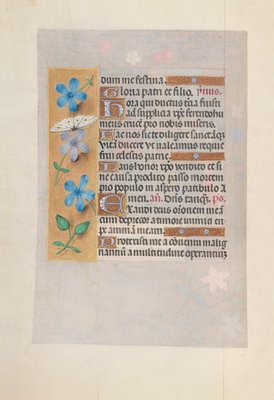 dum me festina.
Gloria patri et filio. ymnus
Hora qui ductus tertia fuisti
ad supplicia xp̄e ferendo hu
meris crucē pro nobis miseris.
Fac nos sic te diligere sanctāq;
vitā ducere vt valeamus requie
frui celestis patrie.
Laus honor xp̄o vendito et si
ne causa prodito passo mortem
pro populo in aspero patibulo a
men. añ. Dn̄s tanq̄. ps.
Exaudi deus or̄onem meā
cum deprecor a timore inimici e
ripe animam meam.
Protexisti me a cōuentu malig
nantiū a multitudine operantiū